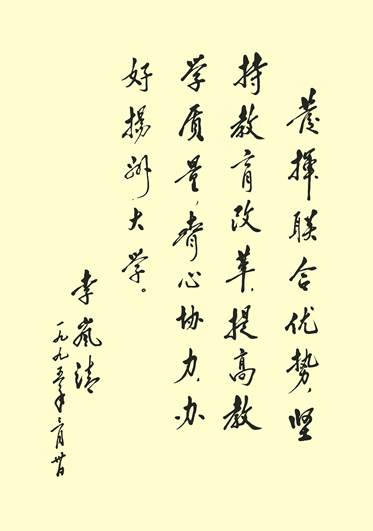 發揮联合优势，坚
持教育改革，提高教
学质量，齊心协力，办
好揚州大学。
李嵐清
一九九五年月日